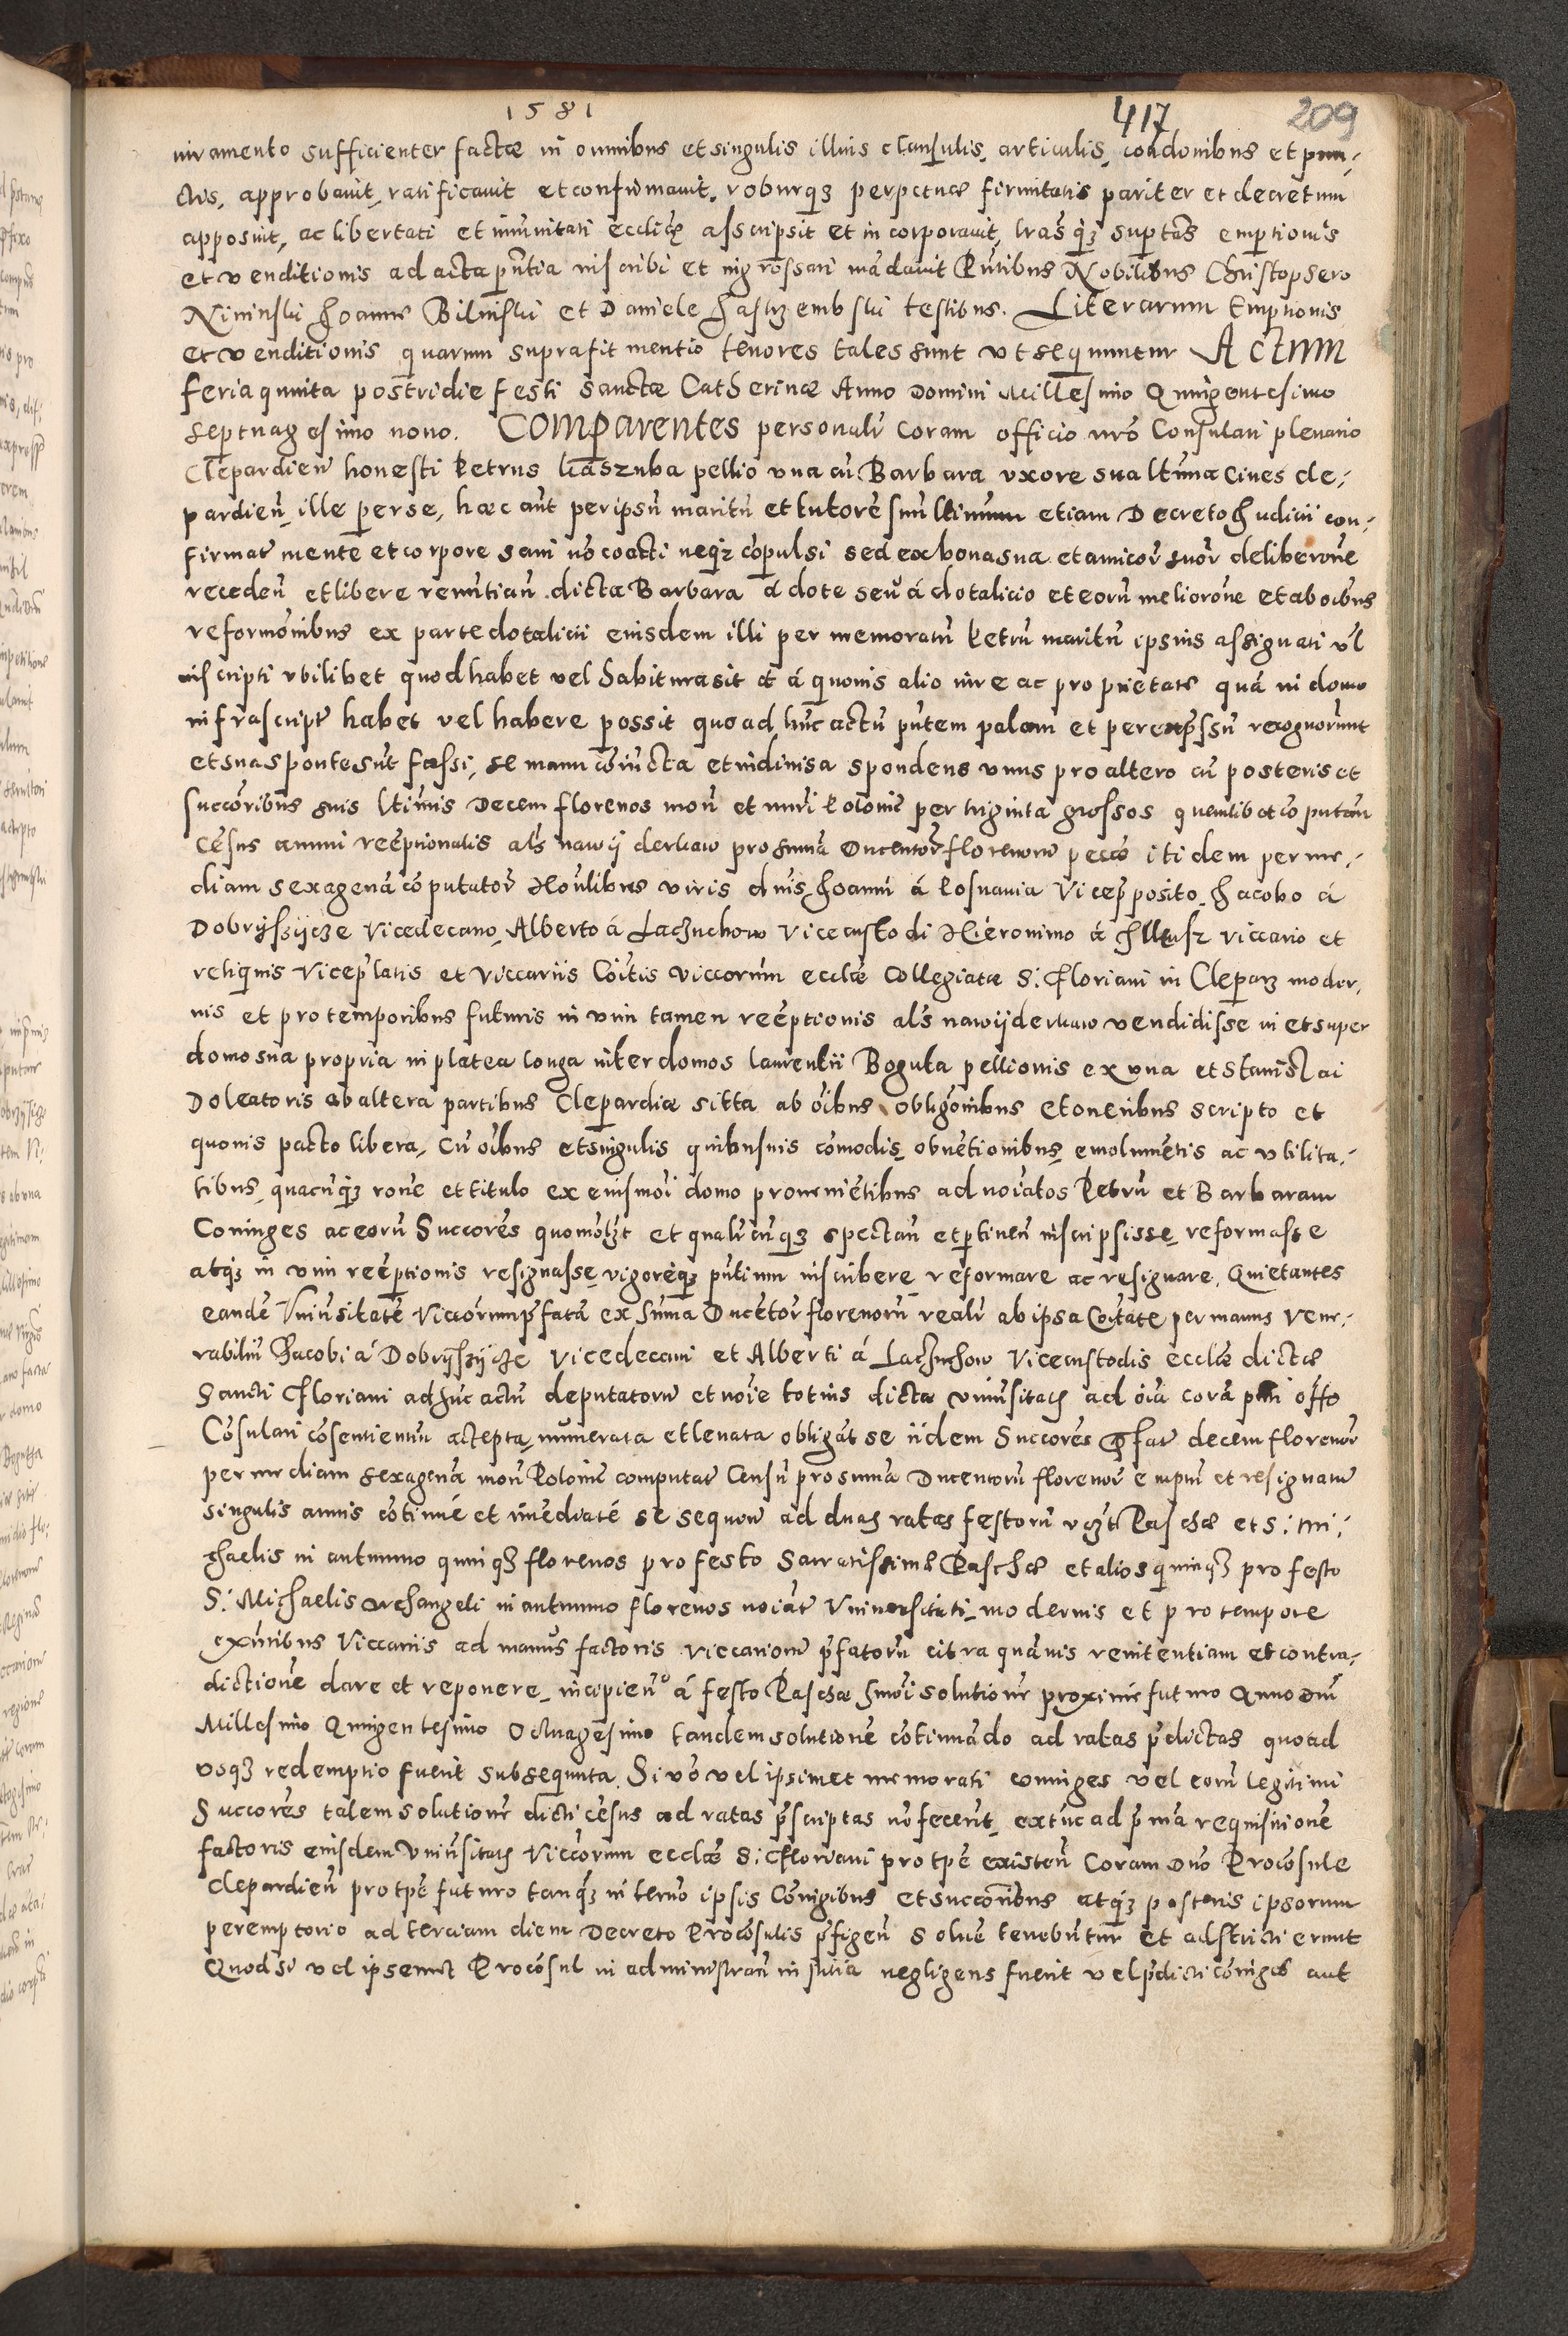 1581 417 209
iuramento sufficienter factæ in omnibus et singulis illius clausulis, articulis, condonibus et pun-
ctis, approbauit, ratificauit et confirmauit, roburq3 perpetuæ firmitatis pariter et decretum
apposuit, ac libertati et imunitati eccliæ asscripsit et incorporauit, lrasq3 suptas emptionis
et venditionis ad acta pntia inscribi et ingrossari mādauit Pntibus Nobilibus Christophero
Nininski Joanne Bilinski et Daniele Jastrzembski testibus. Literarum Emptionis
et venditionis quarum supra fit mentio tenores tales sunt vt sequuntur Actum
feria quinta postridie festi sanctæ Catherinæ Anno Domini Millesimo Quingentesimo
septuagesimo nono. Comparentes personalr coram officio nro Consulari plenario
Clepardien honesti Petrus Kaszuba pellio vna cū Barbara vxore sua ltima Ciues cle-
pardien, ille per se, hæc aūt per ipsū maritū et tutorē suū ltimum etiam Decreto Judicii con-
firmat mente et corpore sani nō coacti neq3 cōpulsi sed ex bona sua et amicor suor deliberone
receden et libere renūtian dicta Barbara á dote seu á dotalicio et eorū meliorone et ab oibus
reformonibus ex parte dotalicii eiusdem illi per memoratū Petrū maritū ipsius assignati vl
inscripti vbilibet quod habet vel habitura sit et á quouis alio iure ac proprietate quā in domo
infrascript habet vel habere possit quoad hūc actū pntem palam et per expssū recognorunt
et sua sponte sūt fassi, se manu cōiūcta et indiuisa spondens vnus pro altero cū posteris et
succoribus suis ltimis Decem florenos mon et nuri Polonie per triginta grossos quemlibet cōputan
Cēsus annui reemptionalis als na wyderkaw pro sūma Ducentor florenorū pecco itidem per me-
diam sexagenā cōputator Honlibus viris dnis Joanni á Posnania Vicepposito Jacobo á
Dobryszijcze Vicedecano, Alberto á Laczuchow Vicecustodi Hieronimo á Ilkusz viccario et
reliquis Viceplatis et Viccariis Coitis viccorum ecclæ Collegiatæ S: Floriani in Cleparz moder-
nis et pro temporibus futuris in vim tamen reemptionis als na wyderkaw vendidisse in et super
domo sua propria in platea longa inter domos laurentii Boguta pellionis ex vna et Stanislai
Doleatoris ab altera partibus Clepardiæ sitta ab oibus obligonibus et oneribus scripto et
quouis pacto libera, cū oibus et singulis quibusuis cōmodis, obuētionibus, emolumētis ac vtilita-
tibus, quacūq3 rone et titulo ex eiusmoi domo proueniētibus ad noiatos Petrū et Barbaram
Coniuges ac eorū Succores quomolibet et qualircūq3 spectan et ptinen inscripsisse, reformasse
atq3 in vim reemptionis resignasse, vigoreq3 pntium inscribere, reformare ac resignare. Quietantes
eandē Vniuersitatē Viccorum pfatā ex sūma Ducētor florenorū realr ab ipsa Coitate per manus Vene-
rabiliū Jacobi á Dobryszijcze Vicedecani et Alberti á Laczuchow Vicecustodis ecclæ dictæ
Sancti Floriani ad hūc actū deputatorū et noie totius dictæ vniuersitatis ad oia corā pnti offo
Cōsulari cōsentientiū accepta, numerata et leuata obligāt se iidem Succores pfat decem florenor
per mediam sexagenā mon Polonie computat Censū pro sūma Ducentorū florenor emptū et resignatū
singulis annis cōtinué et imediaté se sequen ad duas ratas festorū vz Paschæ et S: Mi-
chaelis in autumno quinq3 florenos pro festo Sacratissimæ Paschæ et alios quinq3 pro festo
S: Michaelis Archangeli in autumno florenos noiat Vniuersitati, modernis et pro tempore
exntibus Viccariis ad manus factoris viccariorū pfatorū citra quāuis renitentiam et contra-
dictionē dare et reponere, incipien á festo Paschæ hmoi solutionē proxime futuro Anno Dni
Millesimo Quingentesimo Octuagesimo tandem solutionē cōtinuādo ad ratas pdictas quoad
vsq3 redemptio fuerit subsequuta. Si vō vel ipsimet memorati coniuges vel eorū legitimi
Succores talem solutionē dicti cēsus ad ratas pscriptas nō fecerit, extūc ad pmā requisitionē
factoris eiusdem Vniuersitatis Viccorum ecclæ S: Floriani pro tpe existen Coram Dno Procōsule
clepardien pro tpe futuro tanq3 in termo ipsis Cōiugibus et succoribus atq3 posteris ipsorum
peremptorio ad terciam diem Decreto Procōsulis pfigen Soluere tenebūtur et adstricti erunt
Quod si vel ipsemet Procōsul in administran iustitia negligens fuerit vel pdicti cōiuges aut